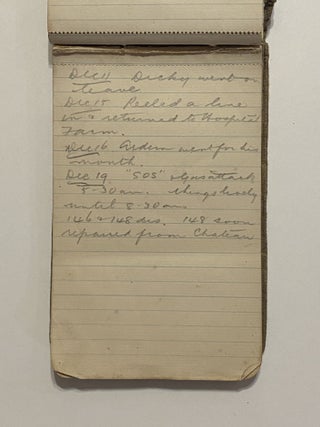 Dec 11 Dicky went on
leave
Dec 15 Reeled a line
in & returned to Hospital
Farm.
Dec 16 went for his
month.
Dec 19 "SOS" & gas attack
5-30 am. things lively
until 8-30 am
146 & 148 dis. 148 soon
repaired from Chateau